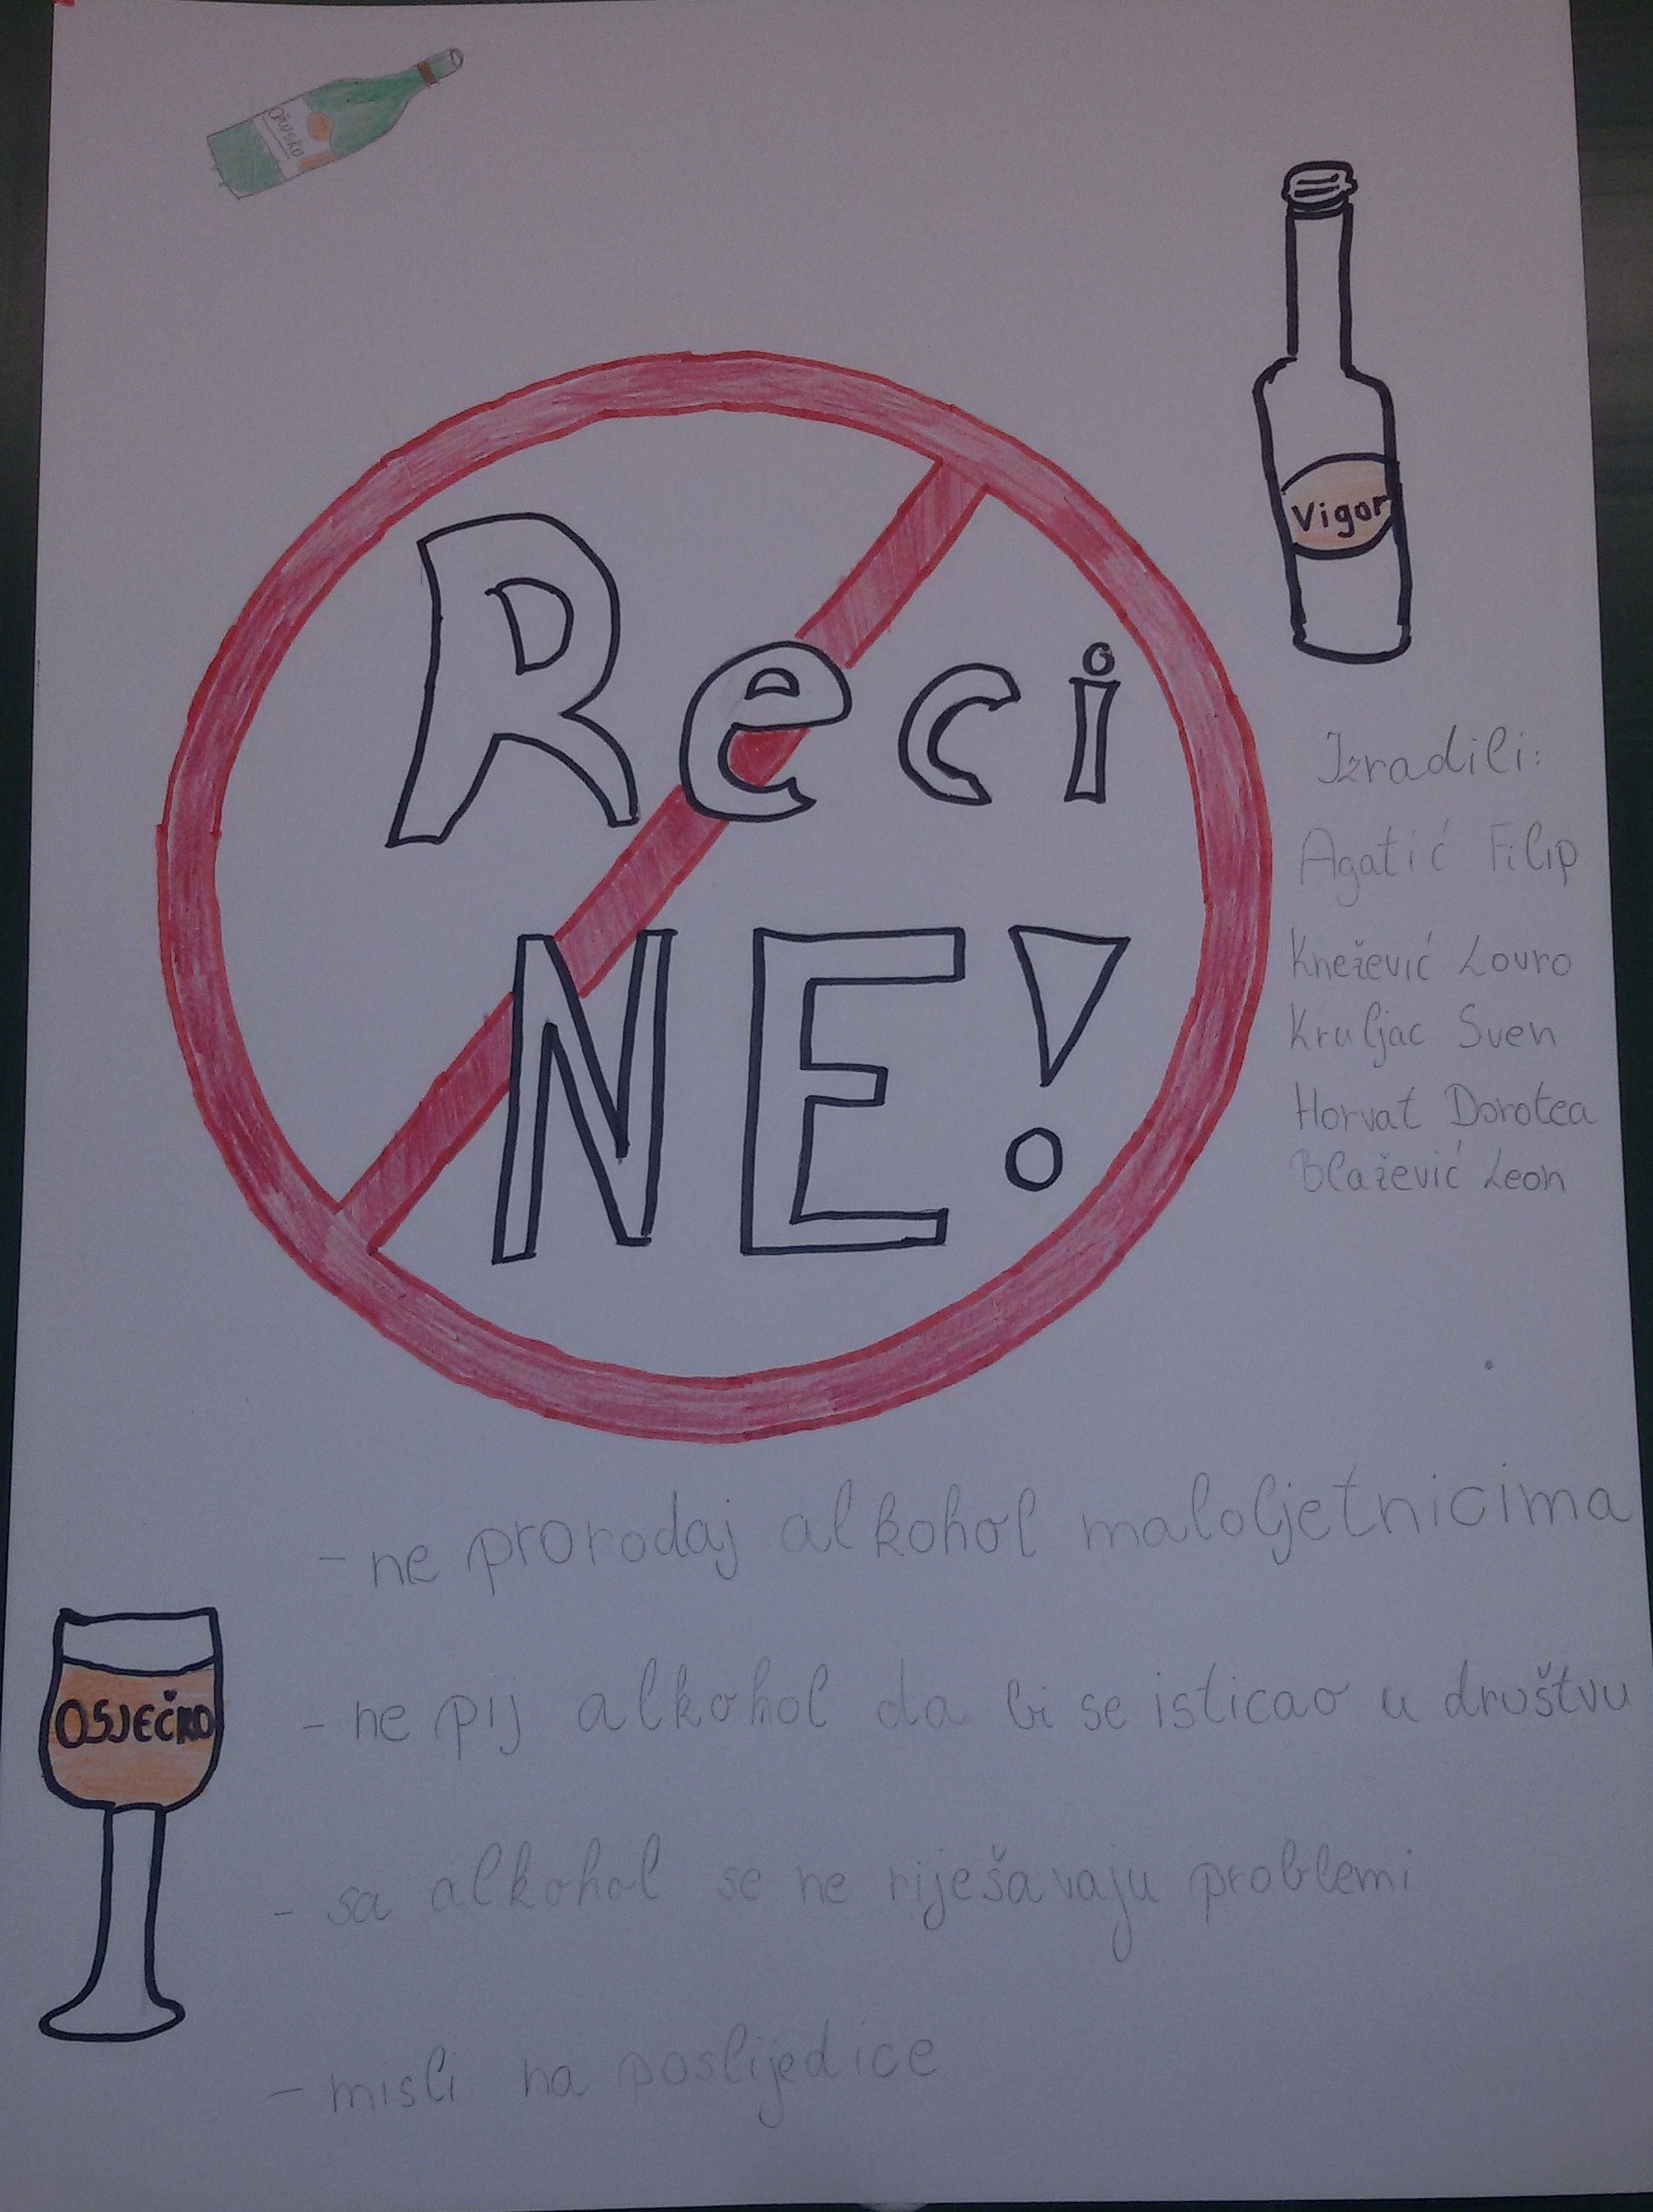 Ožujsko
Vigor
Reci
NE!
Izradili:
Agatić Filip
Knežević Lovro
Kruljac Sven
Horvat Dorotea
Blažević Leon
- ne prorodaj alkohol maloljetnicima
OSJEČKO
- ne pij alkohol da bi se isticao u društvu
- sa alkohol se ne riješavaju problemi
- misli na poslijedice